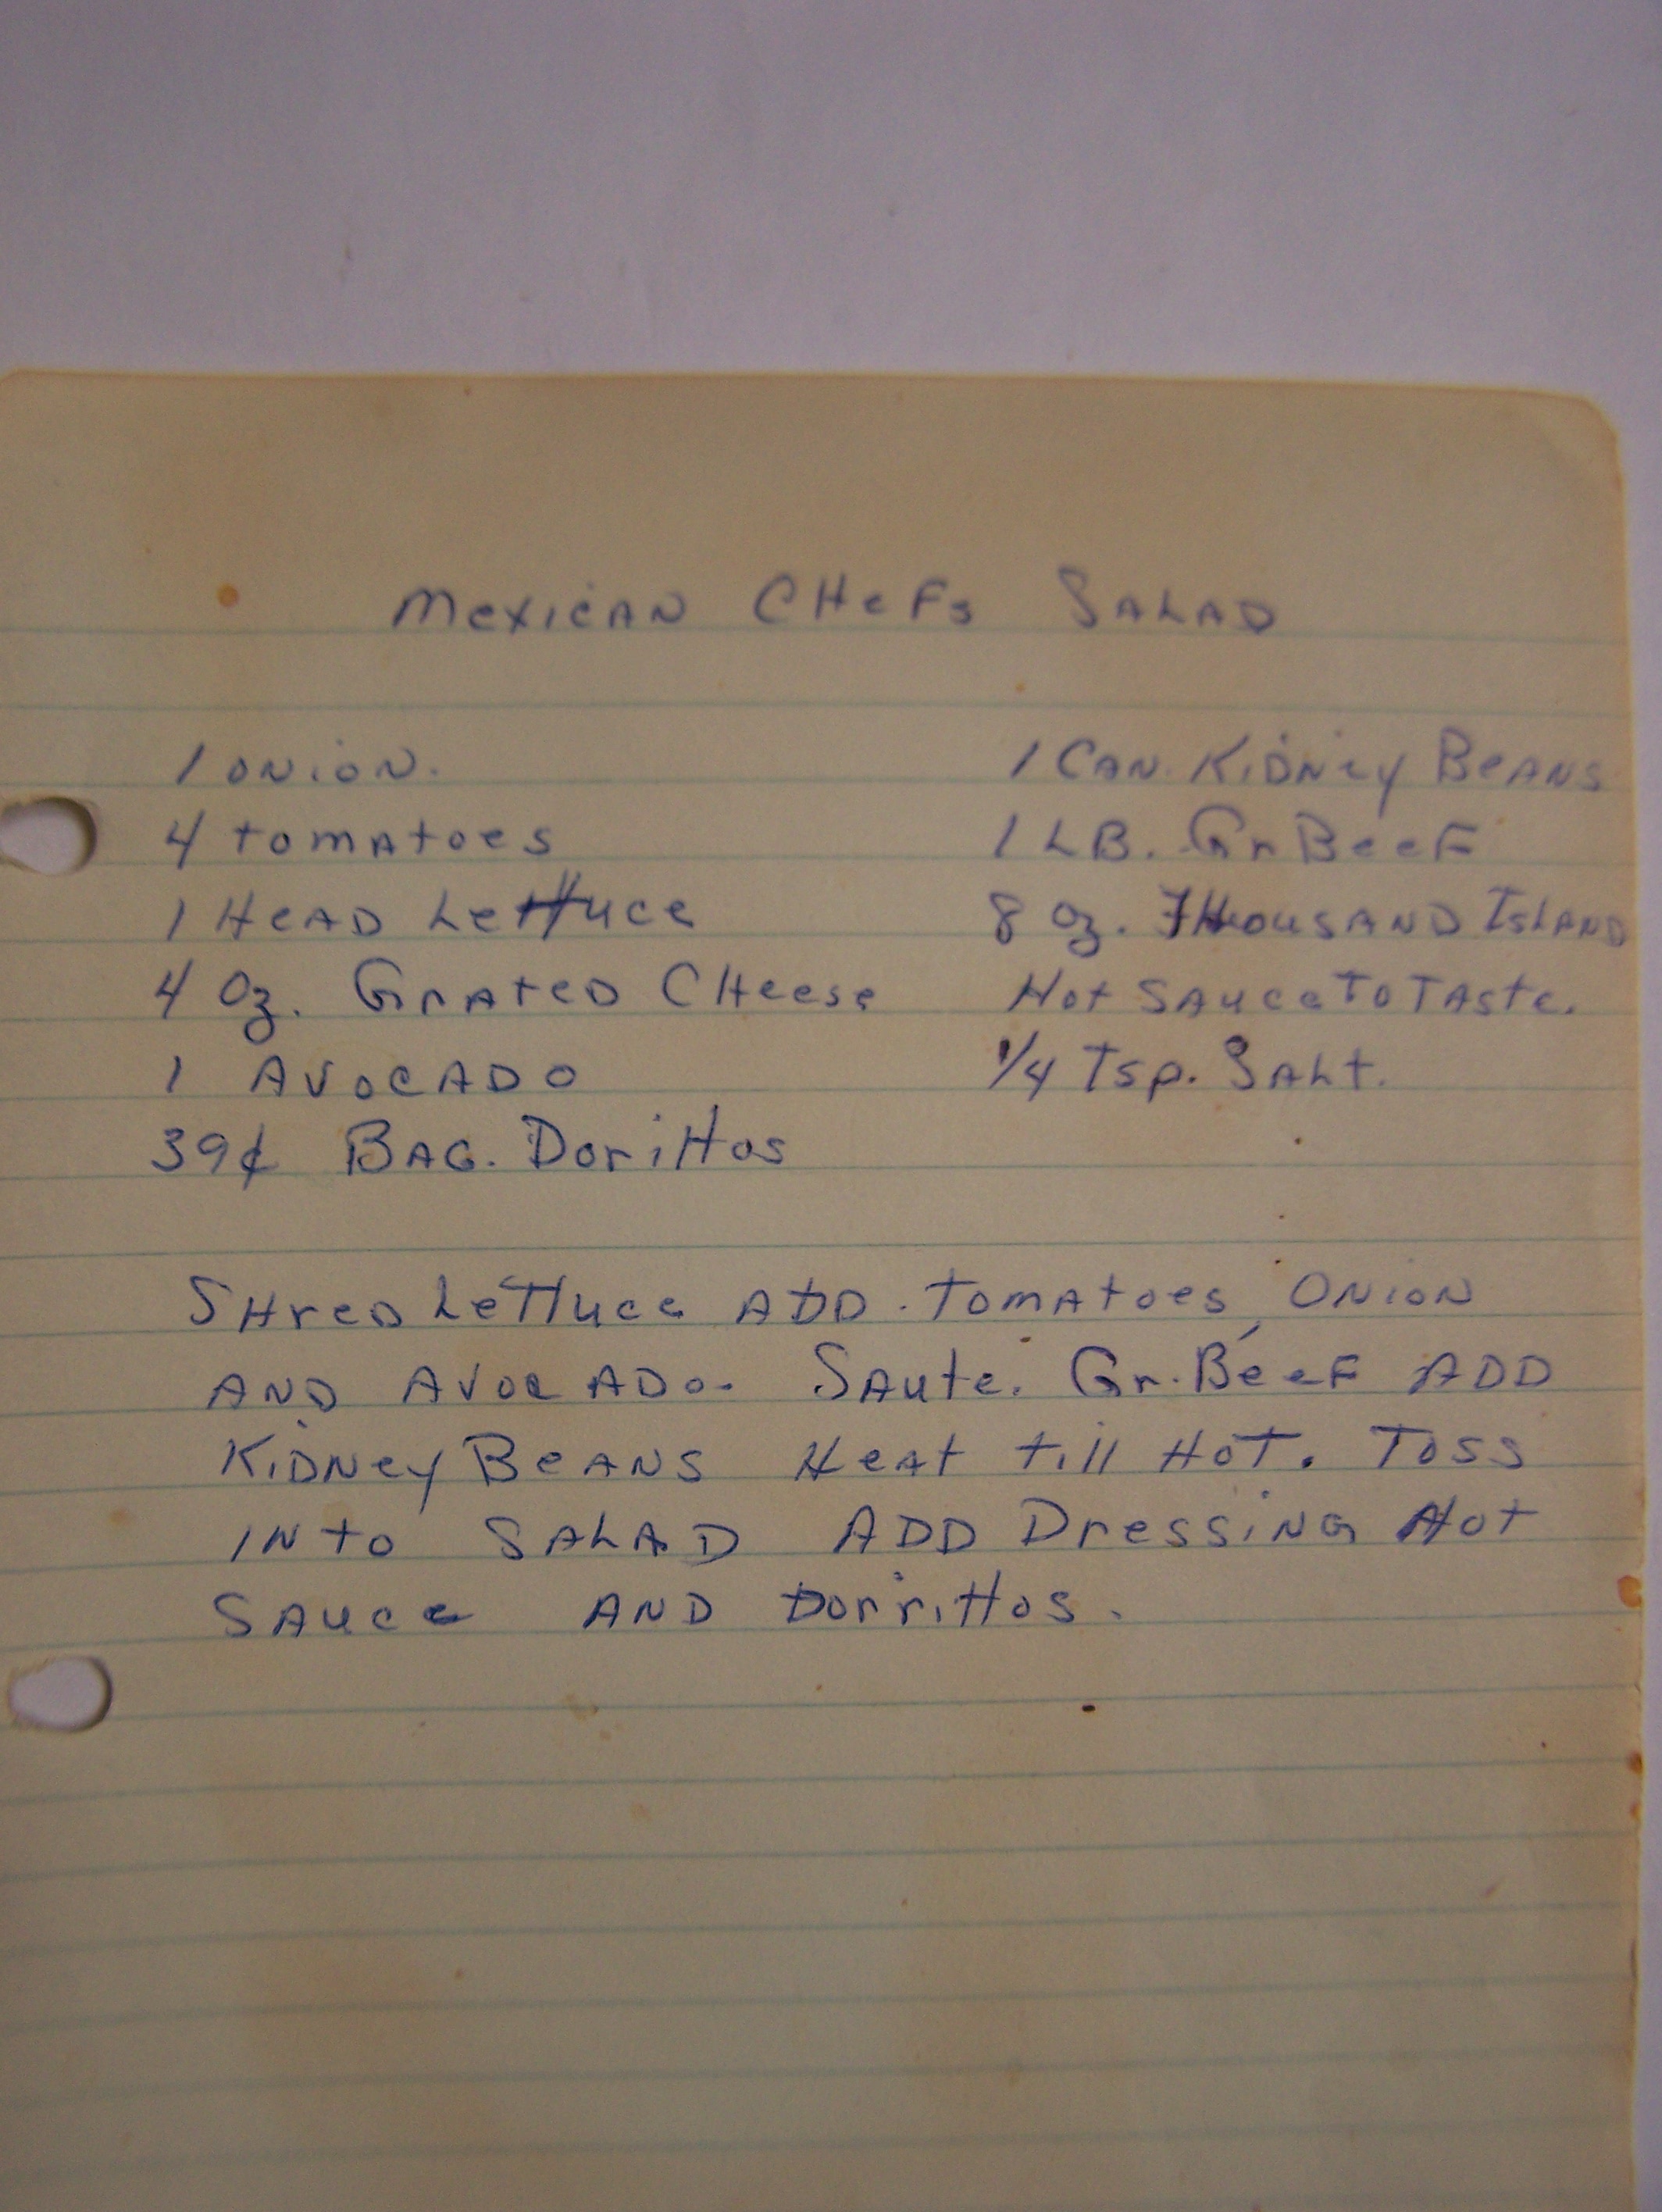 Mexican Chefs Salad
1 onion.
4 tomatoes
1 Head Lettuce
4 oz. Grated Cheese
1 Avocado
39¢ Bag. Dorittos
1 Can. Kidney Beans
1 LB. Gr Beef
8 oz. Thousand Island
Hot Sauce To Taste.
1/4 Tsp. Salt.
Shred Lettuce ADD. Tomatoes, Onion
AND Avocado. Saute. Gr. Beef ADD
Kidney Beans Heat till Hot. Toss
into Salad ADD Dressing Hot
Sauce AND Dorrittos.